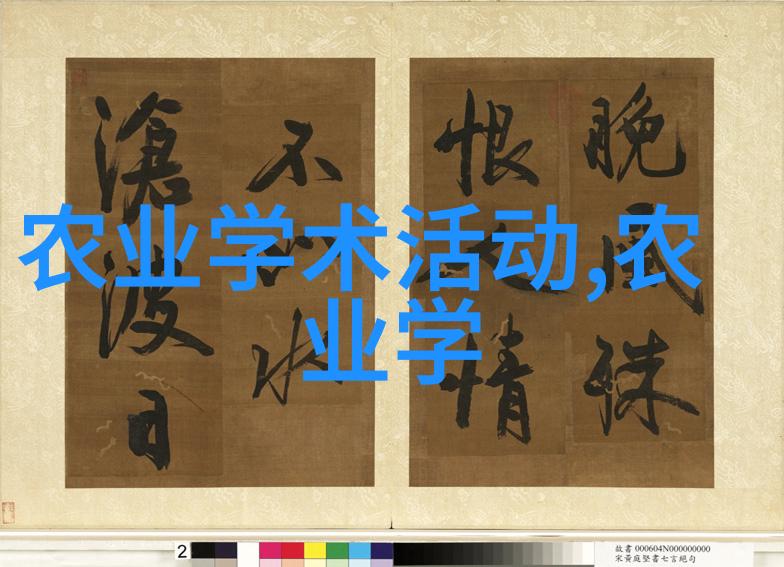 农业学术活动,农
业学
晚風殊
恨情
不水
滄波日
2
故書 000604N000000000
宋黃庭堅書七言絕句